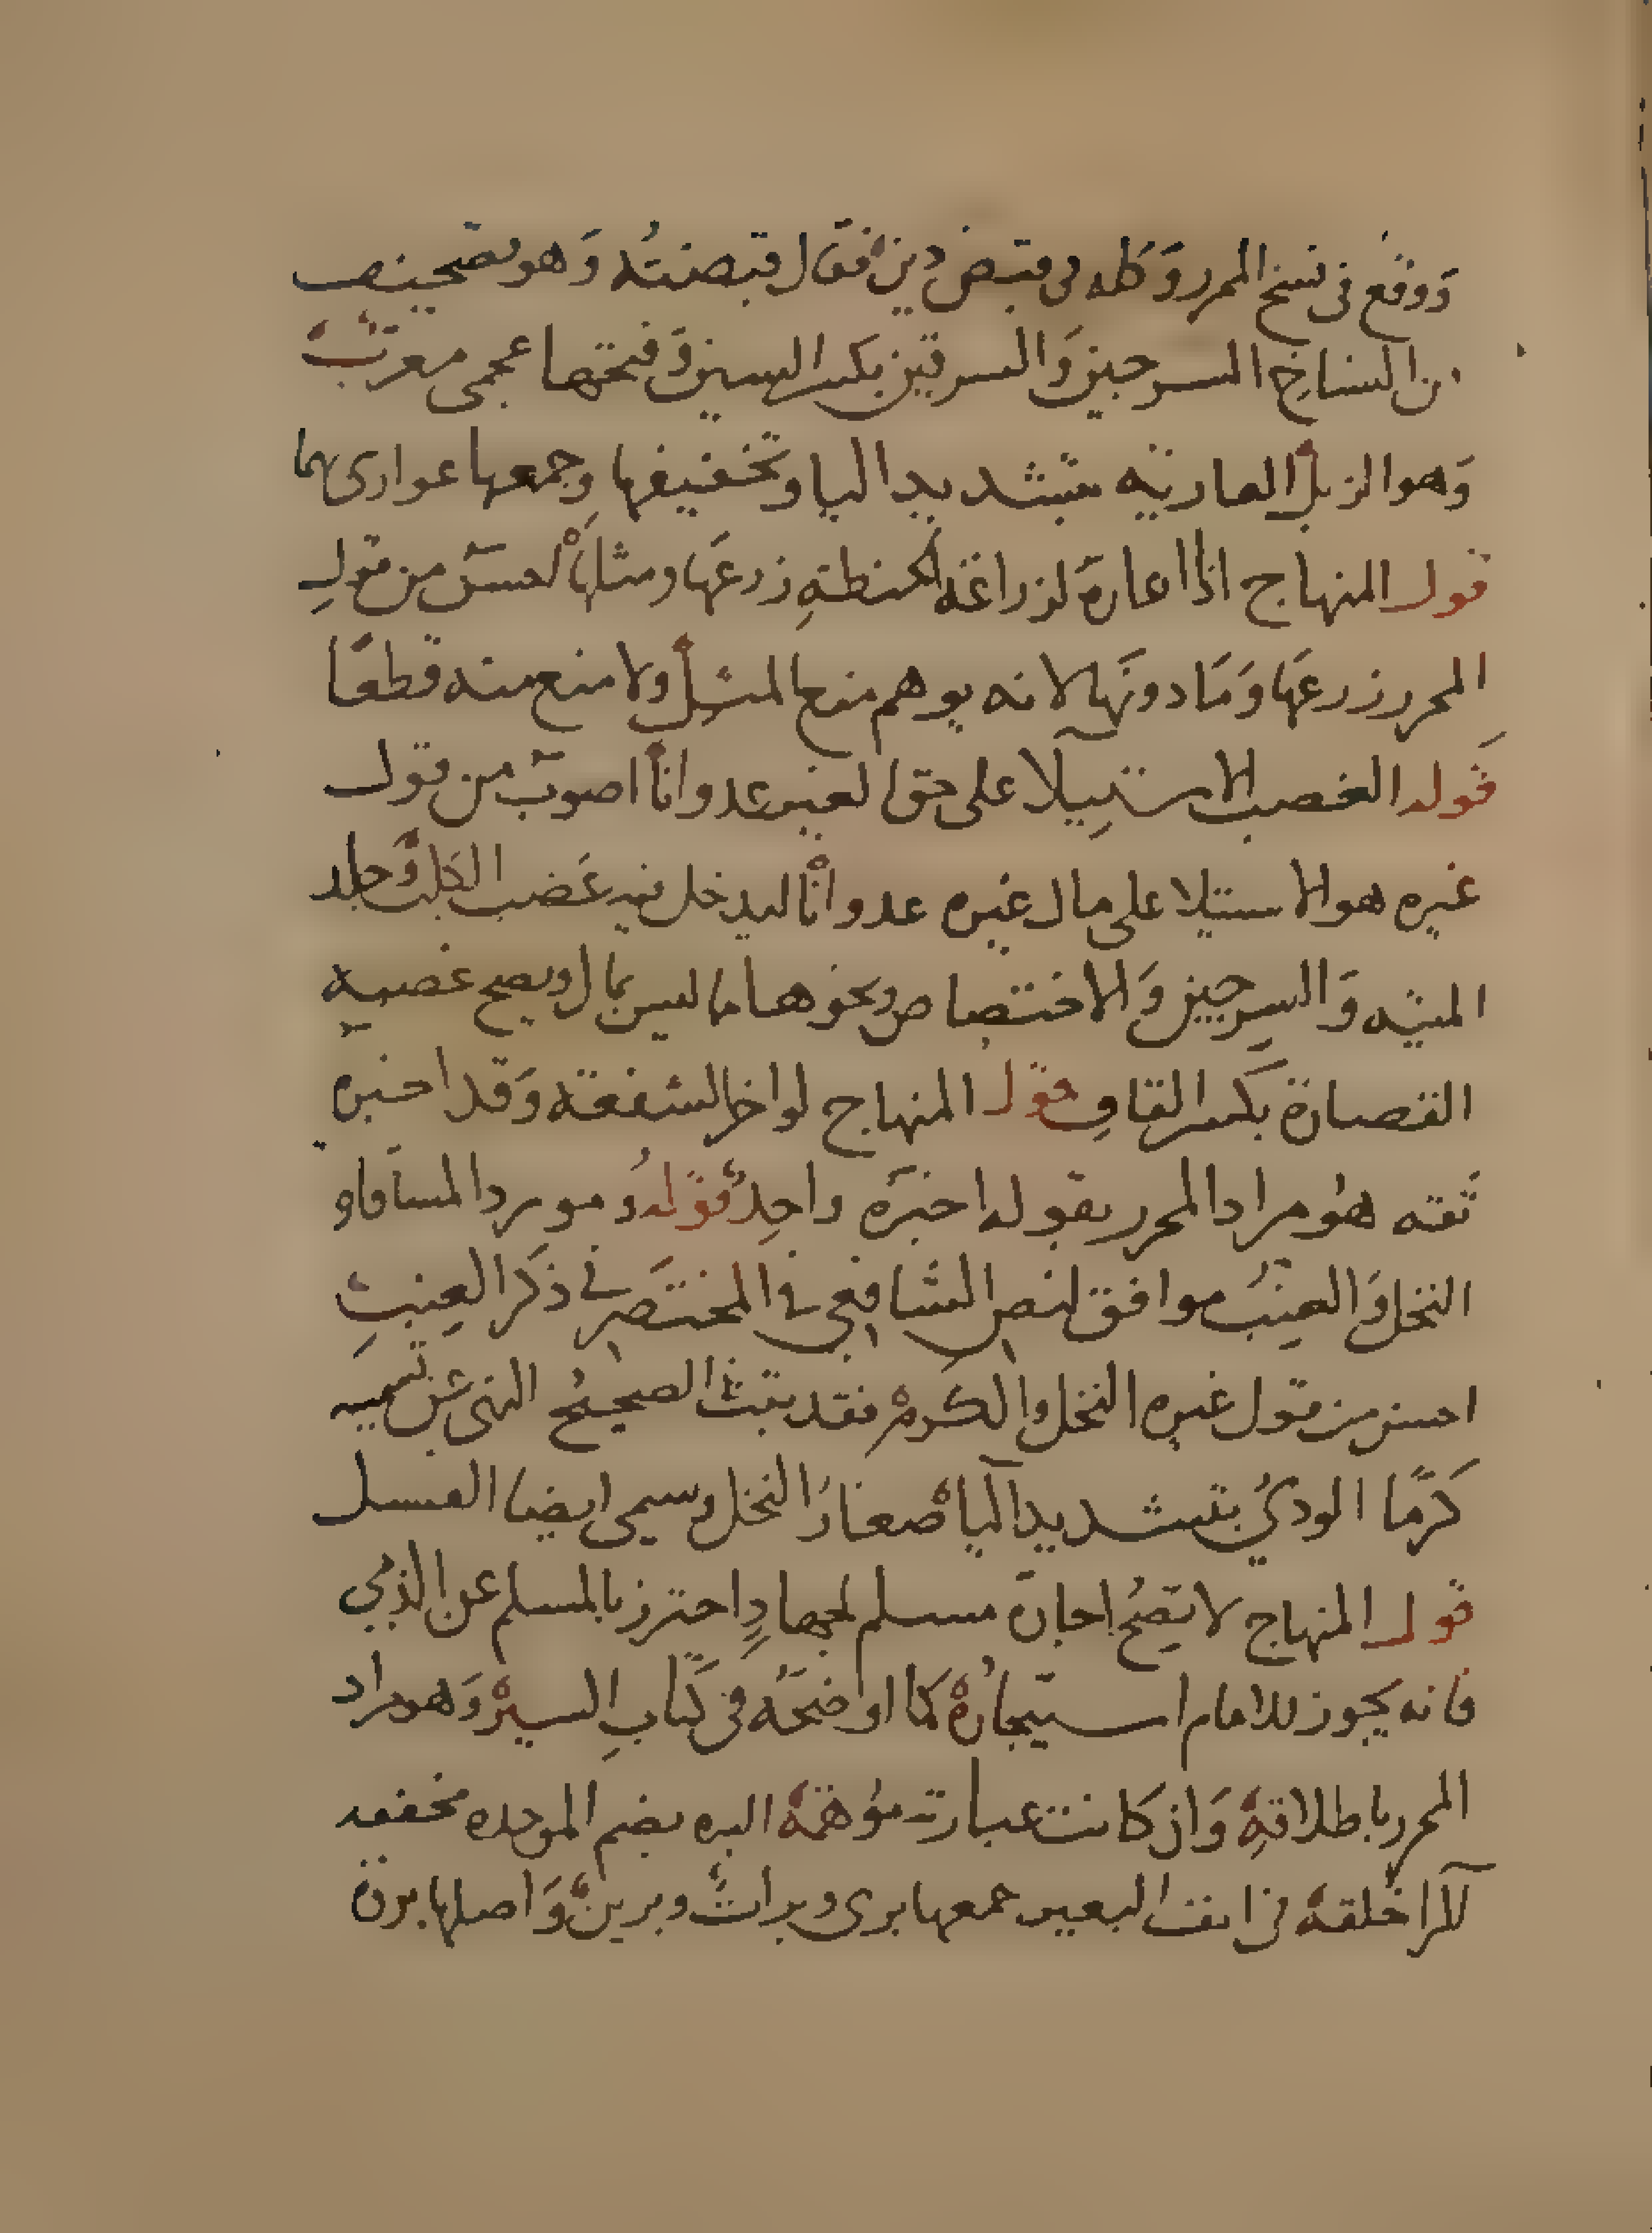 وَوقع في نسخ المحرر وَكله في قبض دين فقال قبضتُه وَهو تصحيف
من النساخ السرجين وَالسرقين بكسر السين وَفتحها عجمي معرب
وَهو الزبل العاريّه بتشديد اليا وتخفيفها وجمعها عواري بهما
قول المنهاج اذا اعاره لزراعة الحنطةِ زرعَها ومثلها احسن من قول
المحرر زرعَها وَمَا دونَها لانه يوهم منع المثل ولا منع منه قطعًا
قوله الغصب الاستيلا على حق الغير عدوانا اصوب من قول
غيره هو الاستيلا على مال غيره عدوانًا ليدخل فيه غصب الكلب وجلد
الميته وَالسرجين وَالاختصاص ونحوها مما ليس بمال ويصح غصبه
القصارة بكسر القافِ قول المنهاج لو اخر الشفعة وَقد اخبره
ثقته هو مراد المحرر بقوله اخبرَه واحِد قوله ومورد المساقاه
النخل وَالعنبُ موافق لنص الشافعي في المختصَر في ذكر العِنبِ
احسن من قول غيره النخل والكرم فقد ثبت في الصحيح النهي عن تسميته
كرمًا الوديّ بتشديد اليا صغارُ النخل وسمي ايضا الفسيل
قول المنهاج لا تصح اجارة مسلم لجهادٍ احترز بالمسلم عن الذمي
فانه يجوز للامام استيجاره كما اوضحَه في كتابِ السير وَهو مراد
المحرر باطلاقه وَان كانت عبارته موهمة البره بضم الموحده مخففه
الرا حلقة في انف البعير جمعها برى وبراتٌ وبرين وَاصلها بروة